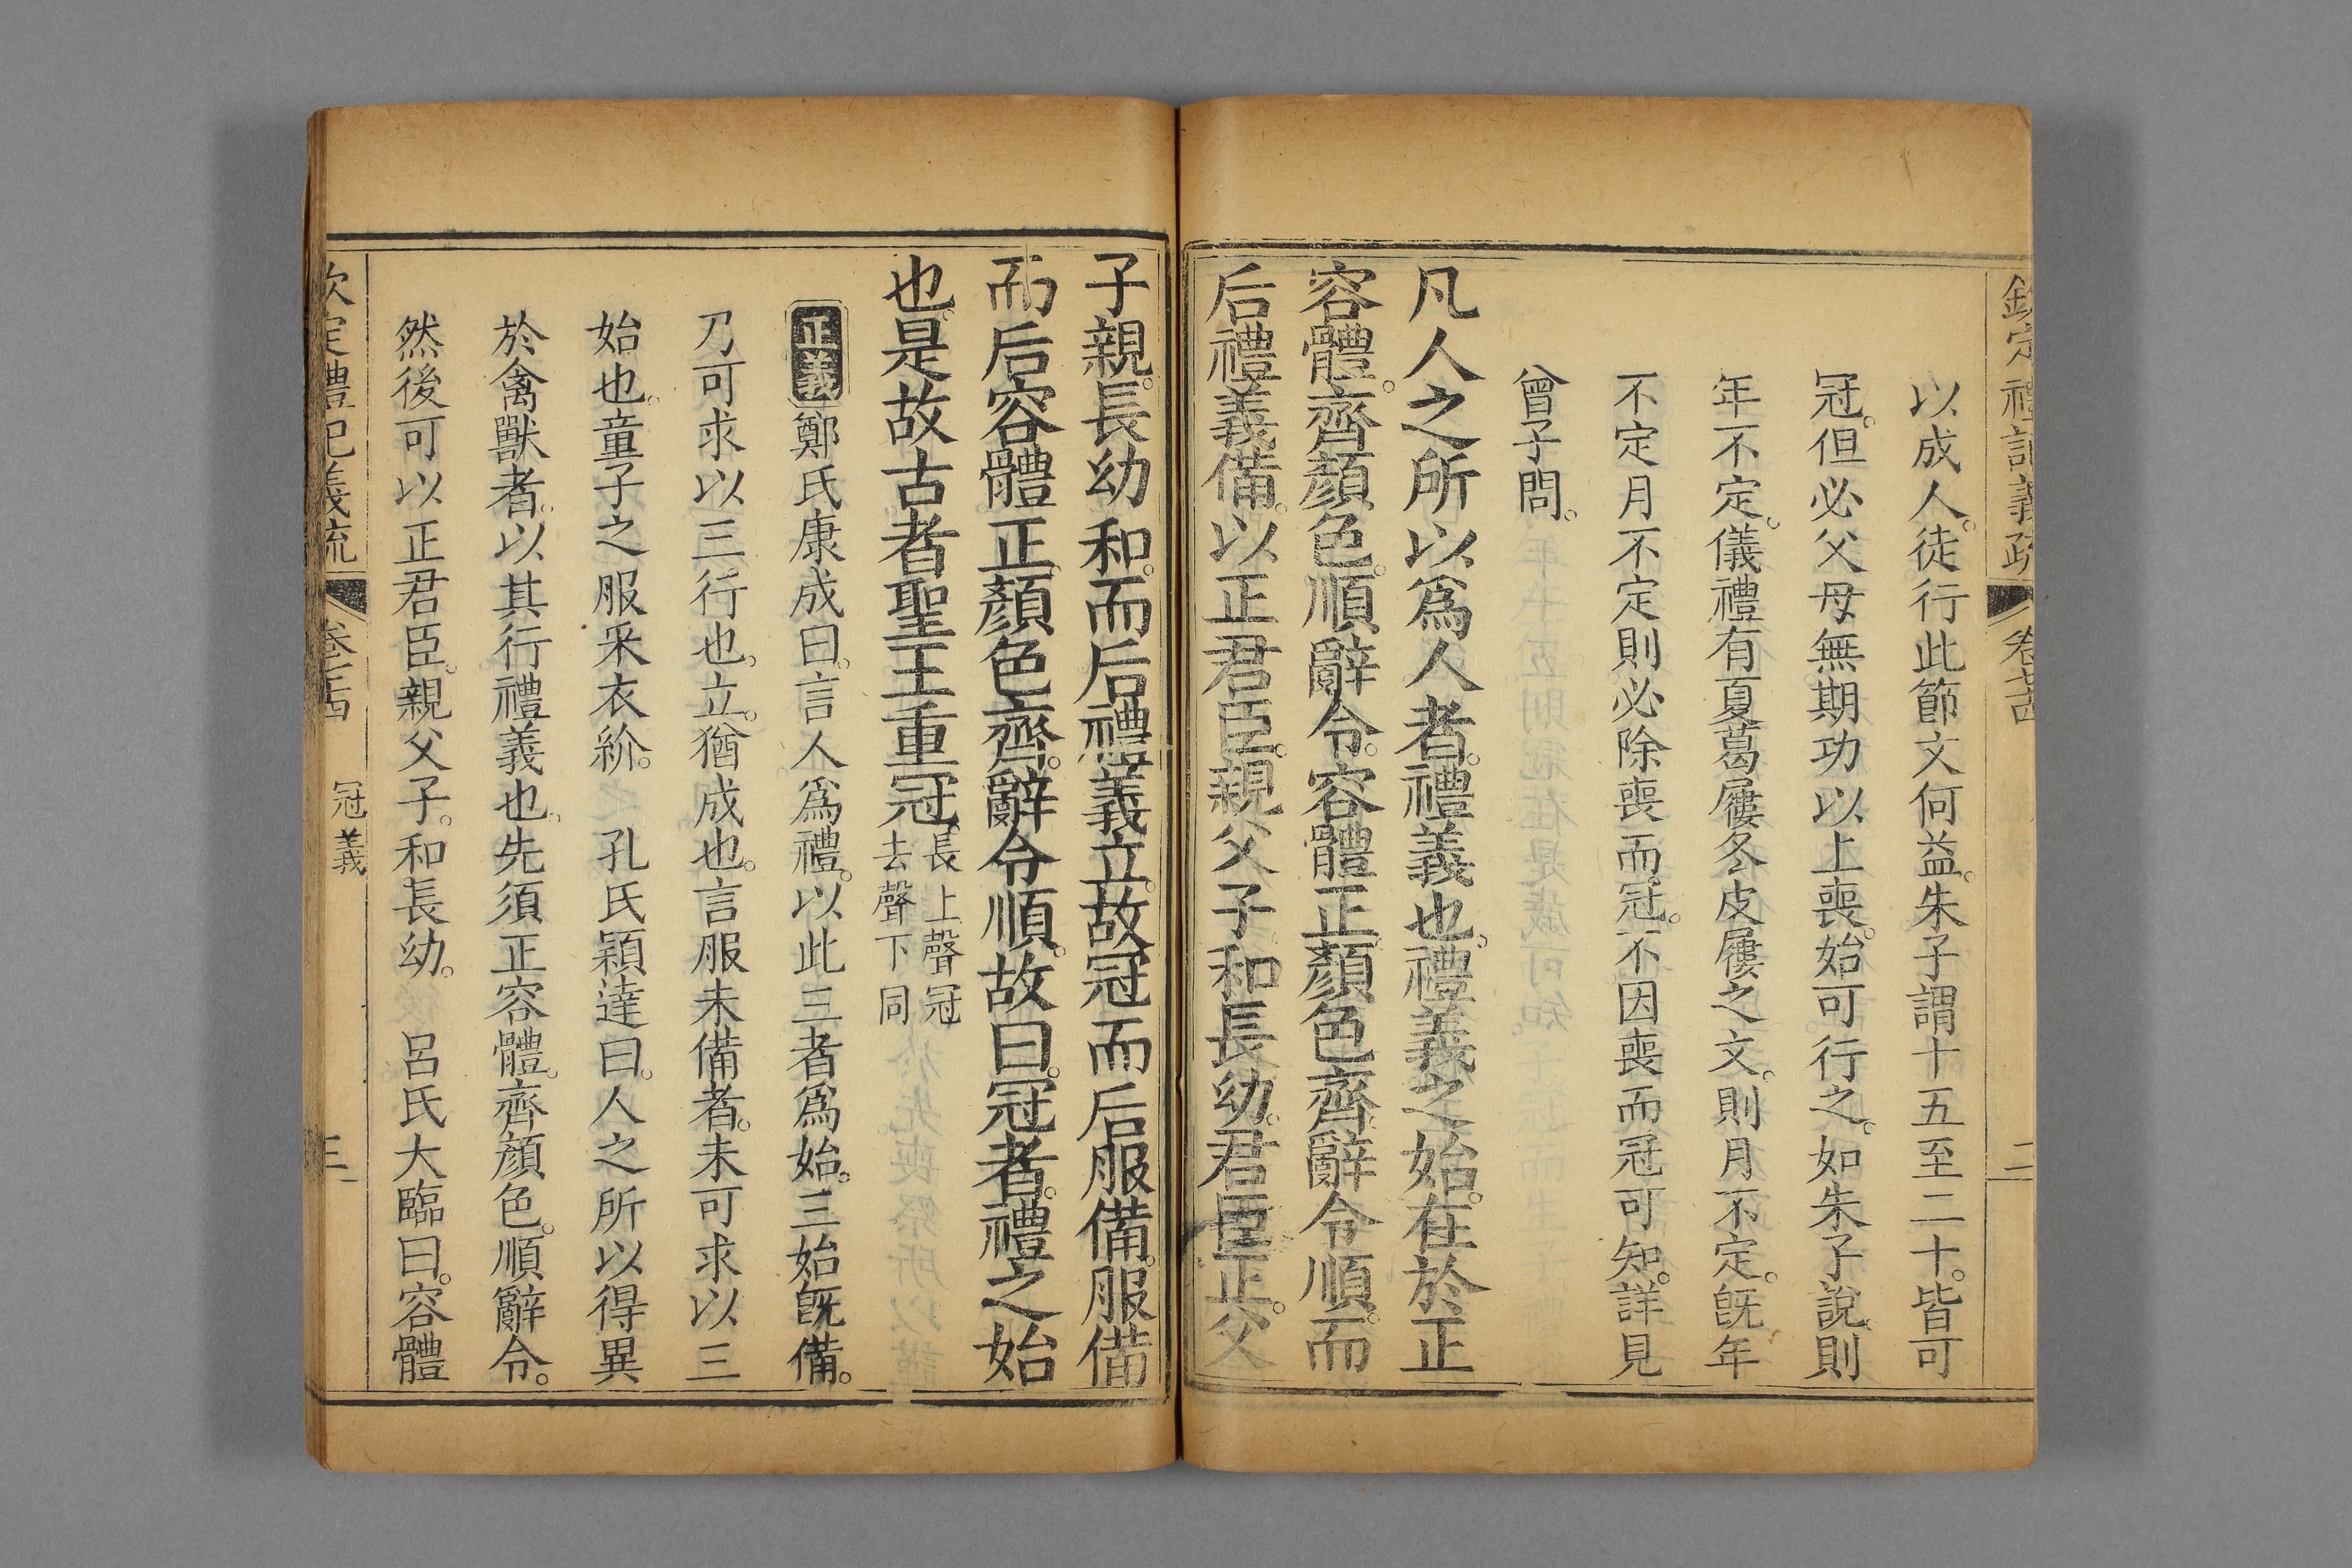 欽定禮記義疏 卷七十四 二
以成人。徒行此節文何益。朱子謂十五至二十。皆可
冠。但必父母無期功以上喪。始可行之。如朱子說。則
年不定。儀禮有夏葛屨冬皮屨之文。則月不定。旣年
不定月不定則必除喪而冠。不因喪而冠可知。詳見
曾子問。
凡人之所以爲人者。禮義也。禮義之始。在於正
容體。齊顏色。順辭令。容體正。顏色齊。辭令順。而
后禮義備。以正君臣。親父子。和長幼。君臣正。父
子親。長幼和。而后禮義立。故冠而后服備。服備
而后容體正。顏色齊。辭令順。故曰。冠者。禮之始
也。是故古者聖王重冠。長上聲冠
去聲下同
正義鄭氏康成曰。言人爲禮。以此三者爲始。三始旣備。
乃可求以三行也。立。猶成也。言服未備者。未可求以三
始也。童子之服采衣紒。 孔氏穎達曰。人之所以得異
於禽獸者。以其行禮義也。先須正容體。齊顏色。順辭令。
然後可以正君臣。親父子。和長幼。 呂氏大臨曰。容體
欽定禮記義疏 卷七十四 冠義 三